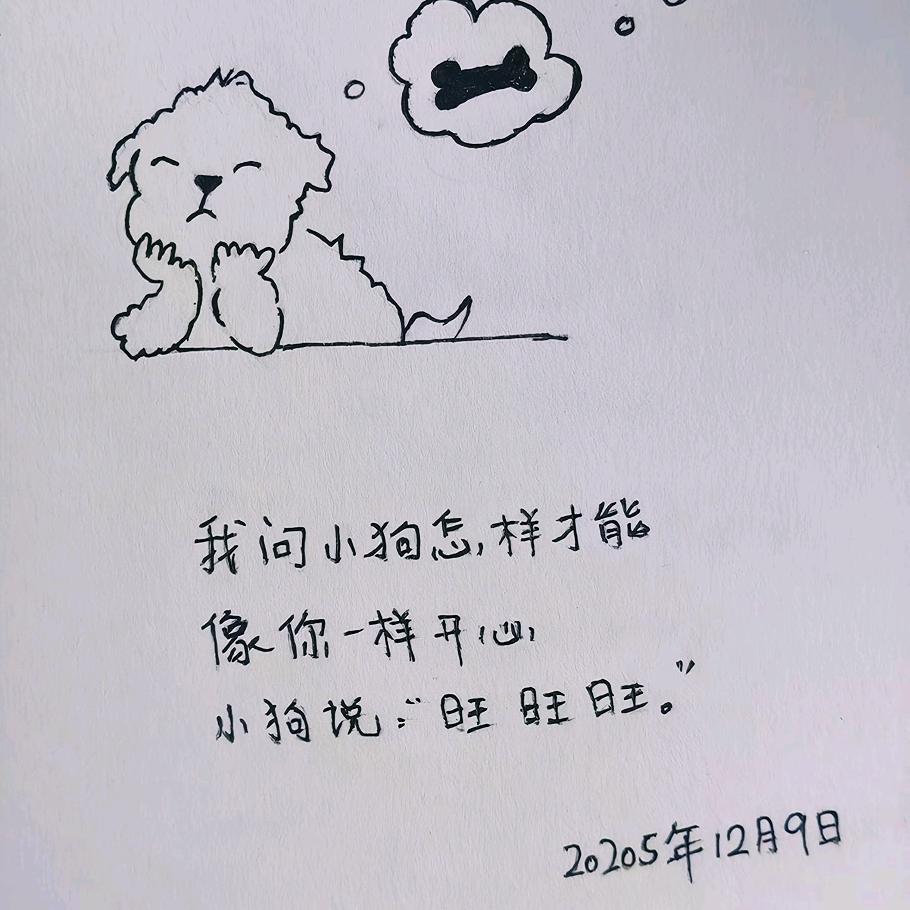 我问小狗怎样才能
像你一样开心
小狗说:“旺 旺 旺。”
20205年12月9日